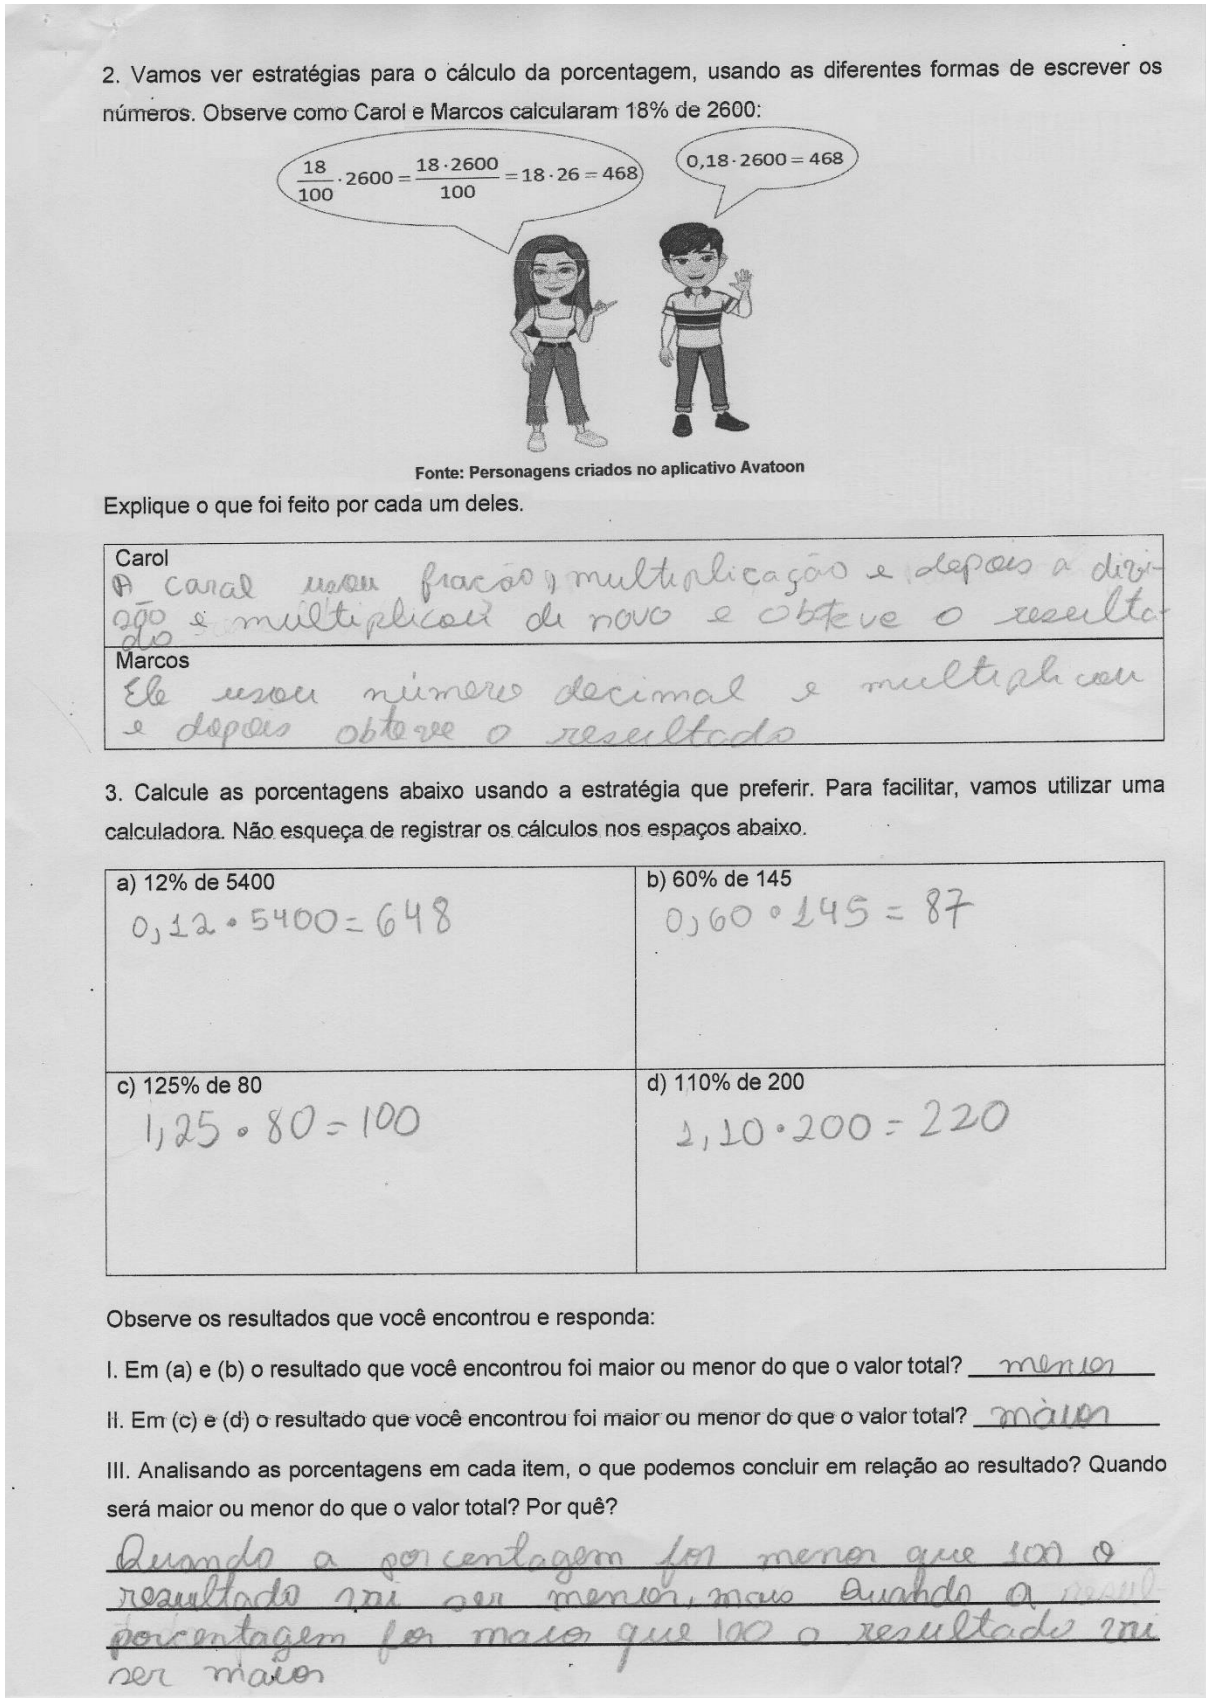 2. Vamos ver estratégias para o cálculo da porcentagem, usando as diferentes formas de escrever os
números. Observe como Carol e Marcos calcularam 18% de 2600:
18/100 · 2600 = 18 · 2600/100 = 18 · 26 = 468
0,18 · 2600 = 468
Fonte: Personagens criados no aplicativo Avatoon
Explique o que foi feito por cada um deles.
Carol
A caral usou fracão, multiplicação e depois a divi-
são e multiplicou de novo e obteve o resulta-
do
Marcos
Ele usou número decimal e multiplicou
e depois obteve o resultado
3. Calcule as porcentagens abaixo usando a estratégia que preferir. Para facilitar, vamos utilizar uma
calculadora. Não esqueça de registrar os cálculos nos espaços abaixo.
a) 12% de 5400
0,12 · 5400 = 648
b) 60% de 145
0,60 · 145 = 87
c) 125% de 80
1,25 · 80 = 100
d) 110% de 200
1,10 · 200 = 220
Observe os resultados que você encontrou e responda:
I. Em (a) e (b) o resultado que você encontrou foi maior ou menor do que o valor total? menor
II. Em (c) e (d) o resultado que você encontrou foi maior ou menor do que o valor total? maior
III. Analisando as porcentagens em cada item, o que podemos concluir em relação ao resultado? Quando
será maior ou menor do que o valor total? Por quê?
Quando a porcentagem for menor que 100 o
resultado vai ser menor, mais Quando a
porcentagem for maior que 100 o resultado vai
ser maior